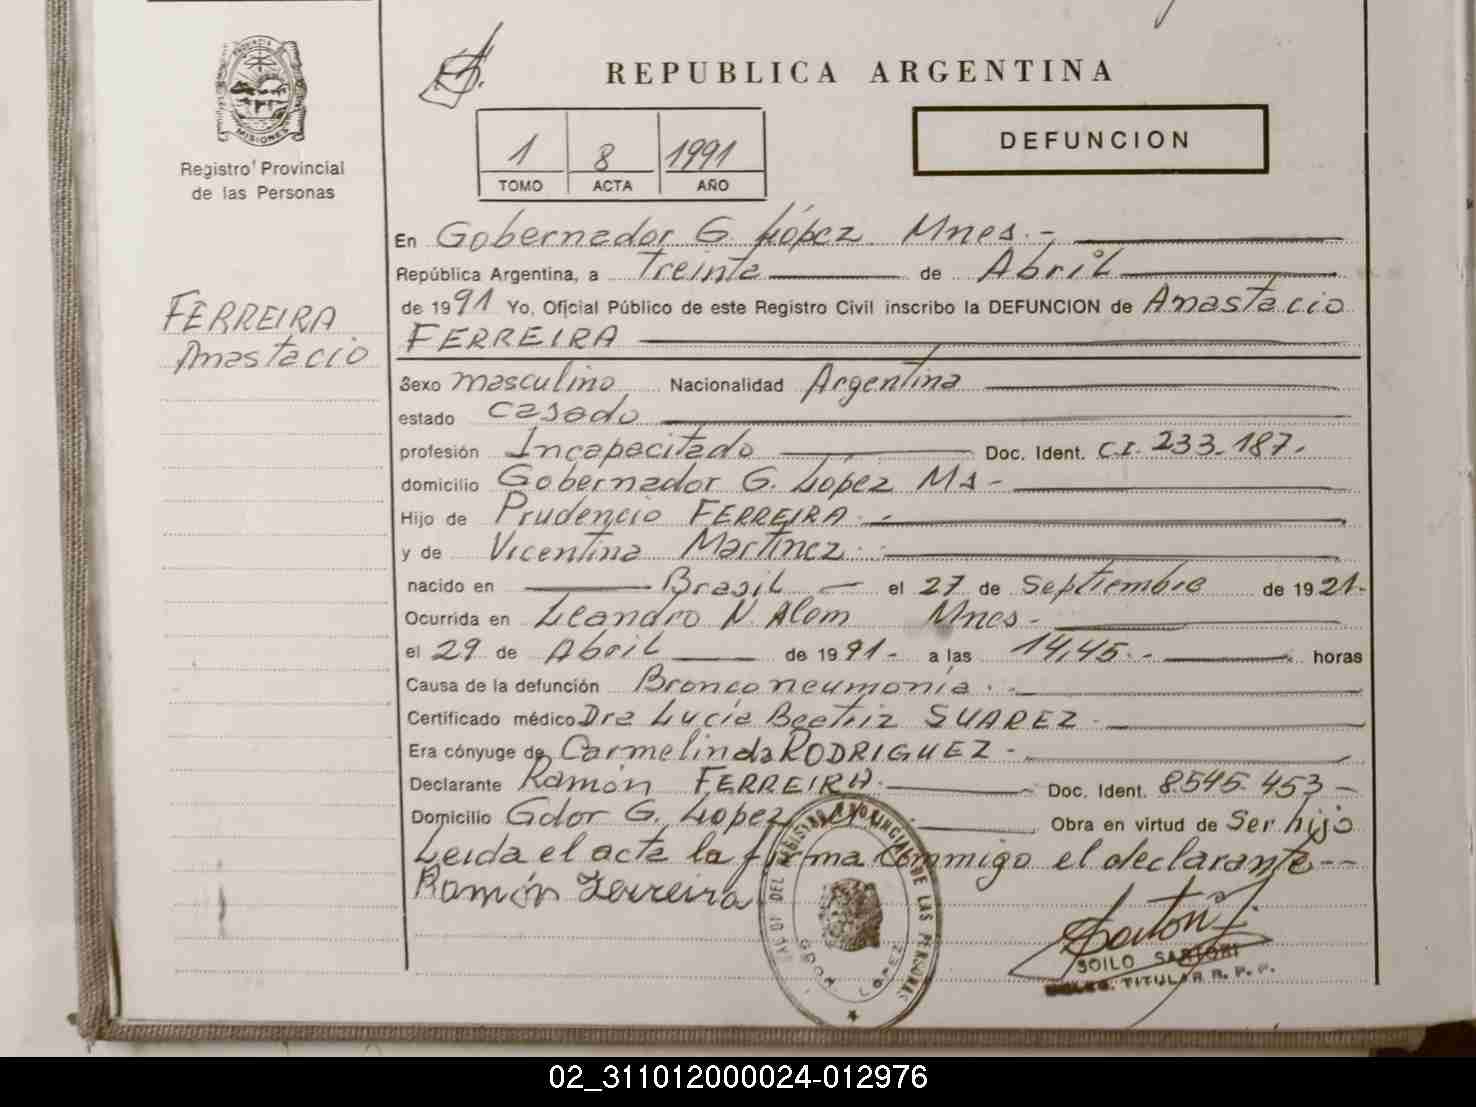 PROVINCIA
MISIONES
Registro Provincial
de las Personas
FERREIRA
Anastacio
REPUBLICA ARGENTINA
1 8 1991
TOMO ACTA AÑO
DEFUNCION
En Gobernador G. López Mnes.-
República Argentina, a Treinta de Abril
de 1991 Yo, Oficial Público de este Registro Civil inscribo la DEFUNCION de Anastacio
FERREIRA
Sexo masculino Nacionalidad Argentina
estado casado
profesión Incapacitado Doc. Ident. C.I. 233.187.
domicilio Gobernador G. López Ms-
Hijo de Prudencio FERREIRA.-
y de Vicentina Martinez.-
nacido en Brasil - el 27 de Septiembre de 1921.
Ocurrida en Leandro N. Alem Mnes-
el 29 de Abril de 1991- a las 14,45.- horas
Causa de la defunción Bronconeumonía.-
Certificado médico Dra Lucía Beatriz SUAREZ-
Era cónyuge de Carmelinda RODRIGUEZ-
Declarante Ramón FERREIRA- Doc. Ident. 8545.453-
Domicilio Gdor G. López Obra en virtud de Ser hijo
Leida el acta la firma commigo el declarante--
Ramón Ferreira
DEL REGISTRO PROVINCIAL DE LAS PERSONAS
GDOR LOPEZ
SOILO SARTORI
DELEG. TITULAR R. P. P.
02_311012000024-012976